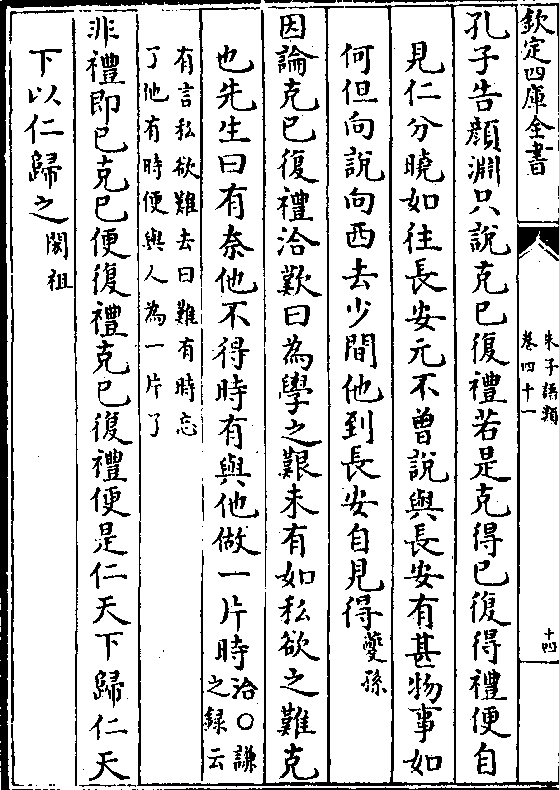 欽定四庫全書
朱子語類
卷四十一
十四
孔子告顔淵只說克己復禮若是克得己復得禮便自
見仁分曉如往長安元不曾說與長安有甚物事如
何但向說向西去少間他到長安自見得夔孫
因論克己復禮洽歎曰為學之艱未有如私欲之難克
也先生曰有奈他不得時有與他做一片時洽○謙
之録云
有言私欲難去曰難有時忘
了他有時便與人為一片了
非禮即己克己便復禮克己復禮便是仁天下歸仁天
下以仁歸之閎祖